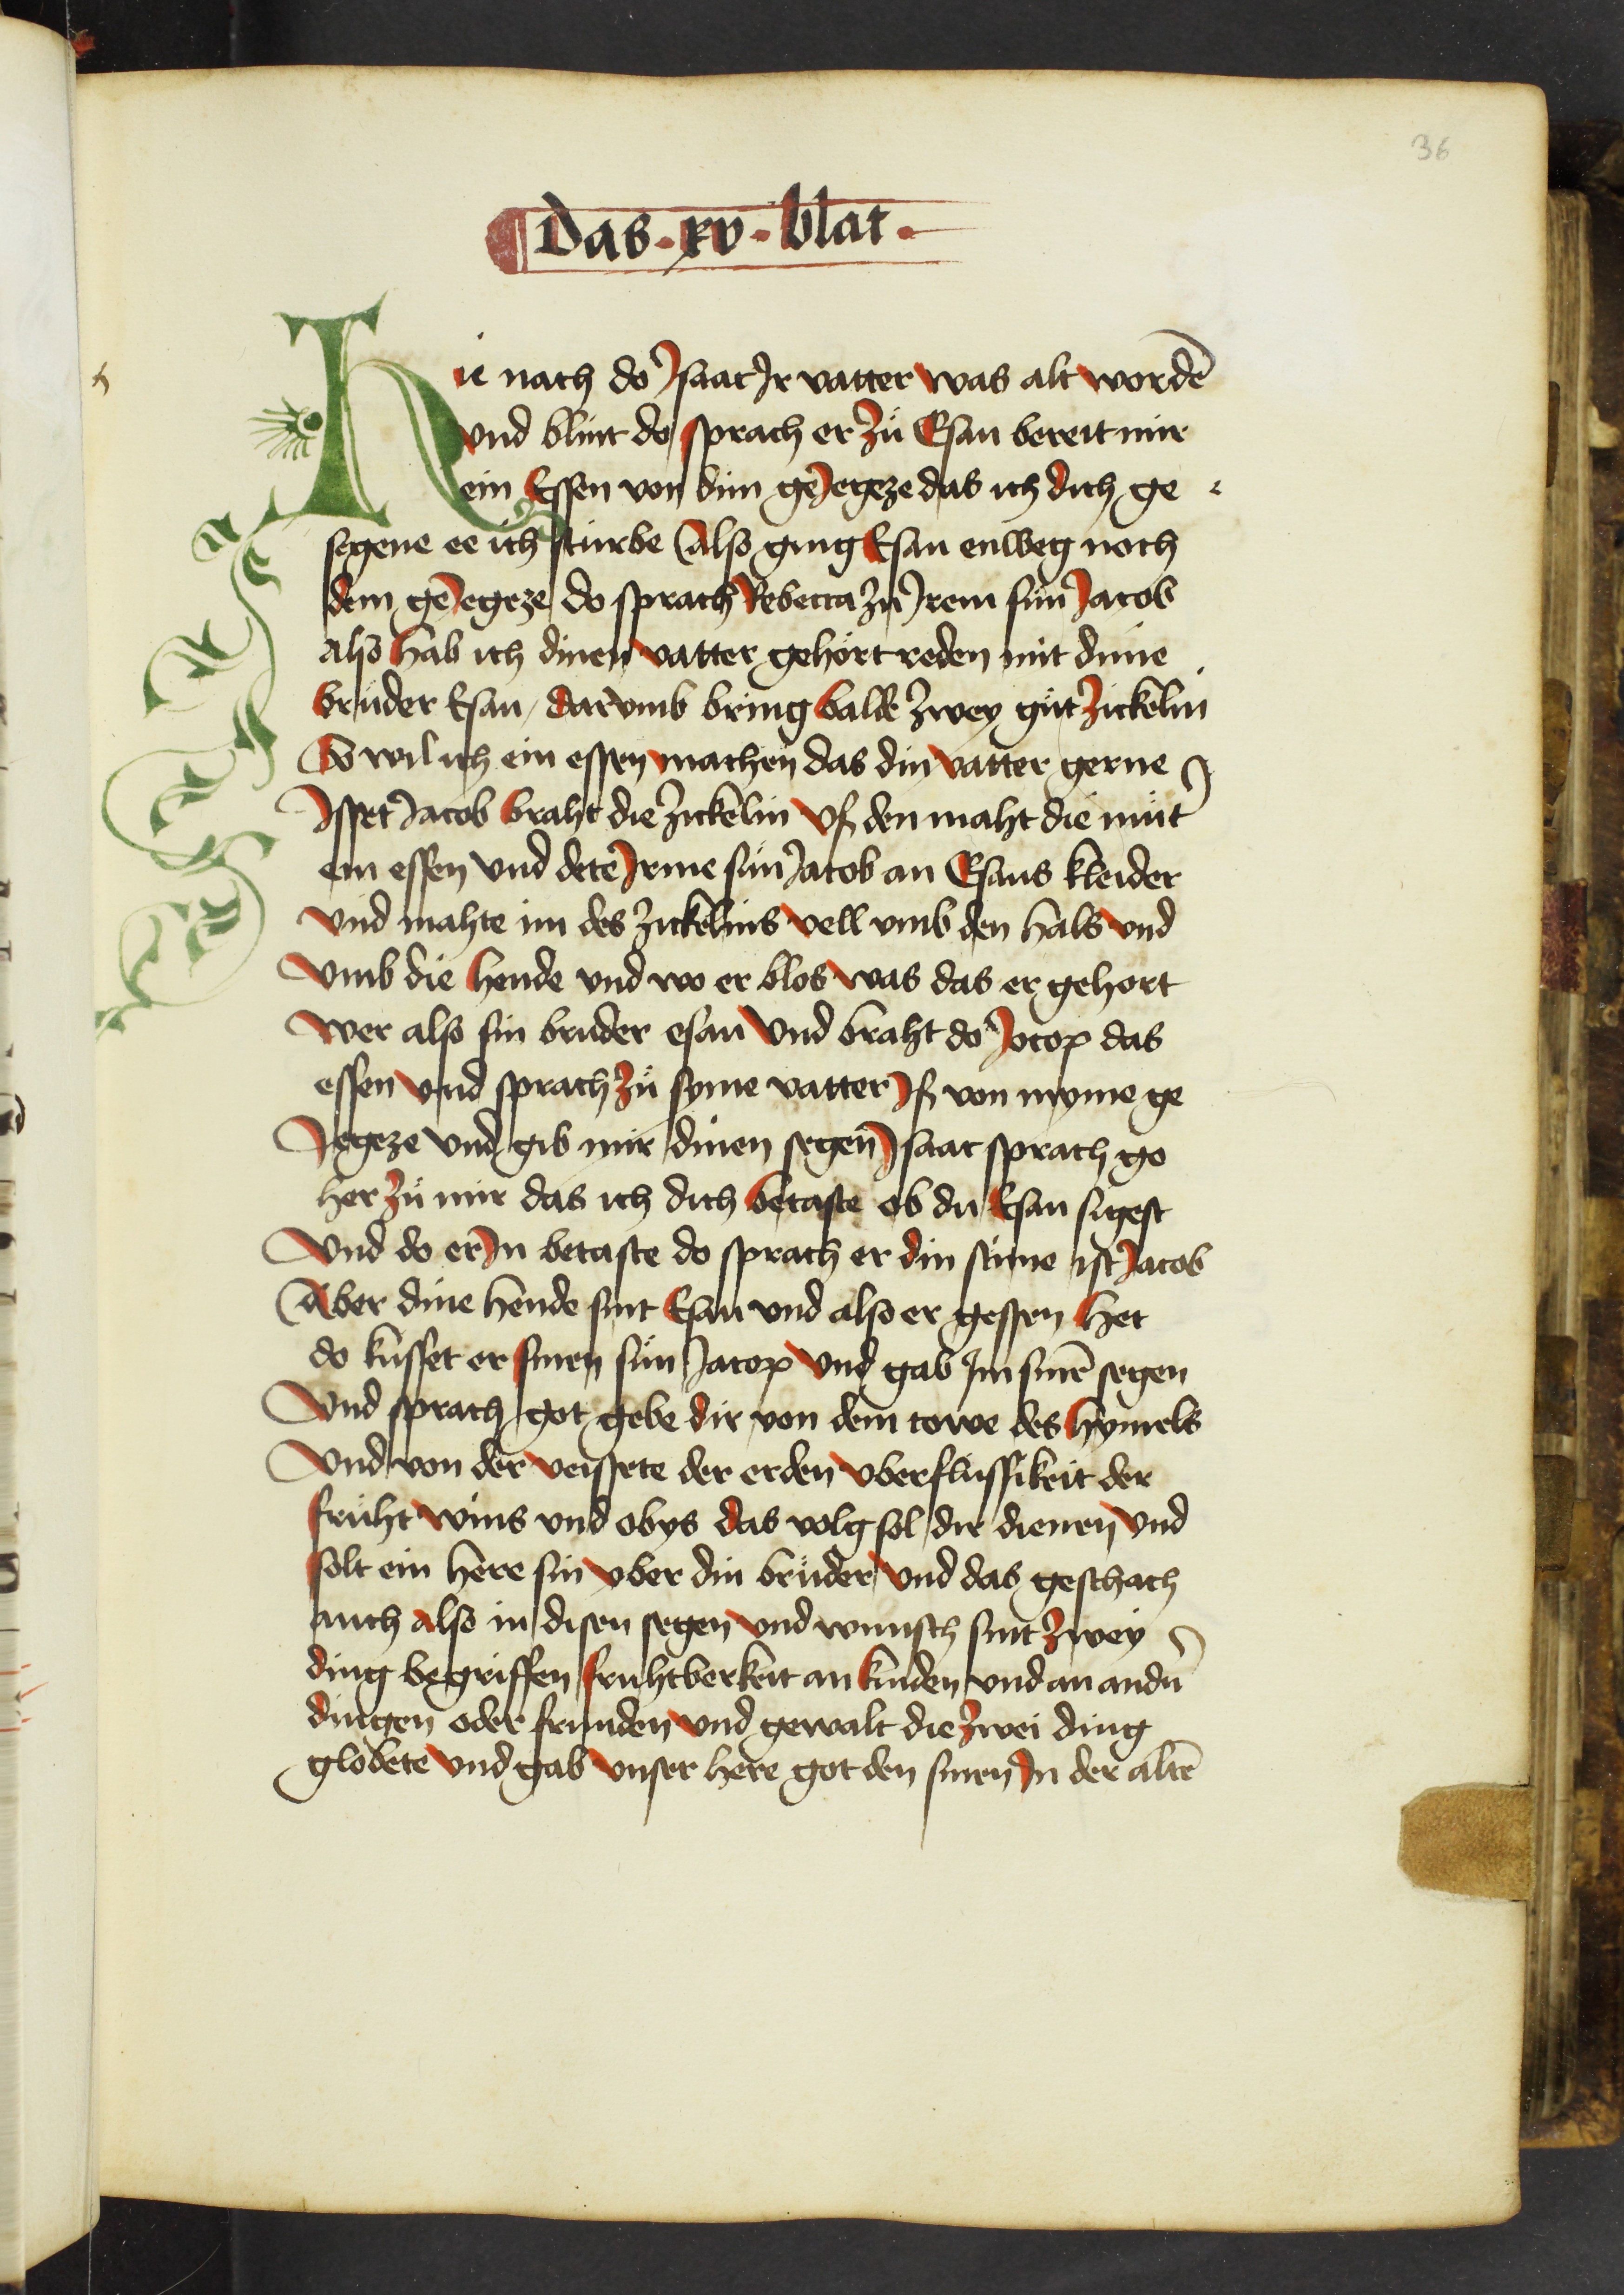 36
Das · xv · blat ·
Hie nach do Isaac Ir vatter was alt wordē
vnd blint do sprach er zů Esau bereit mir
ein Essen von dim geJegeze das ich dich ge
segene ee ich stürbe Also ging Esau enweg noch
dem geJegeze do sprach Rebecca zů Jrem sůn Jacob
also hab ich dinen vatter gehört reden mit dime
brůder Esau / darvmb bring balde zwey gůt zickelin
So wil ich ein essen machen das din vatter gerne
Jsset Jacob braht die zickelin vß den maht die můt
ein essen vnd dete Jrme sůn Jacob an Esaus kleider
vnd mahte im des zickelins vell vmb den hals vnd
vmb die hende vnd wo er blos was das er gehort
wer also sin bruder esau vnd braht do Jocop das
essen vnd sprach zů syme vatter Jß von myme ge
Jegeze vnd gib mir dinen segen Jsaac sprach go
her zů mir das ich dich betaste ob du Esau sigest
Vnd do er Jn betaste do sprach er din stime ist Jacob
Aber dine hende sint Esau vnd also er gessen het
do kusset er sinen sůn Jacop vnd gab Jm sinē segen
Vnd sprach got gebe dir von dem towe des hymels
Vnd von der veissete der erden vberflüssikeit der
früht wins vnd obys das volg sol dir dienen vnd
solt ein here sin vber din brüder vnd das geschach
auch also in disen segen vnd wunsch sint zwey
ding begriffen fruhtberkeit an kinden vnd an andn̄
dingen oder frunden vnd gewalt die zwei ding
globete vnd gab vnser here got den sinen Jn der altē